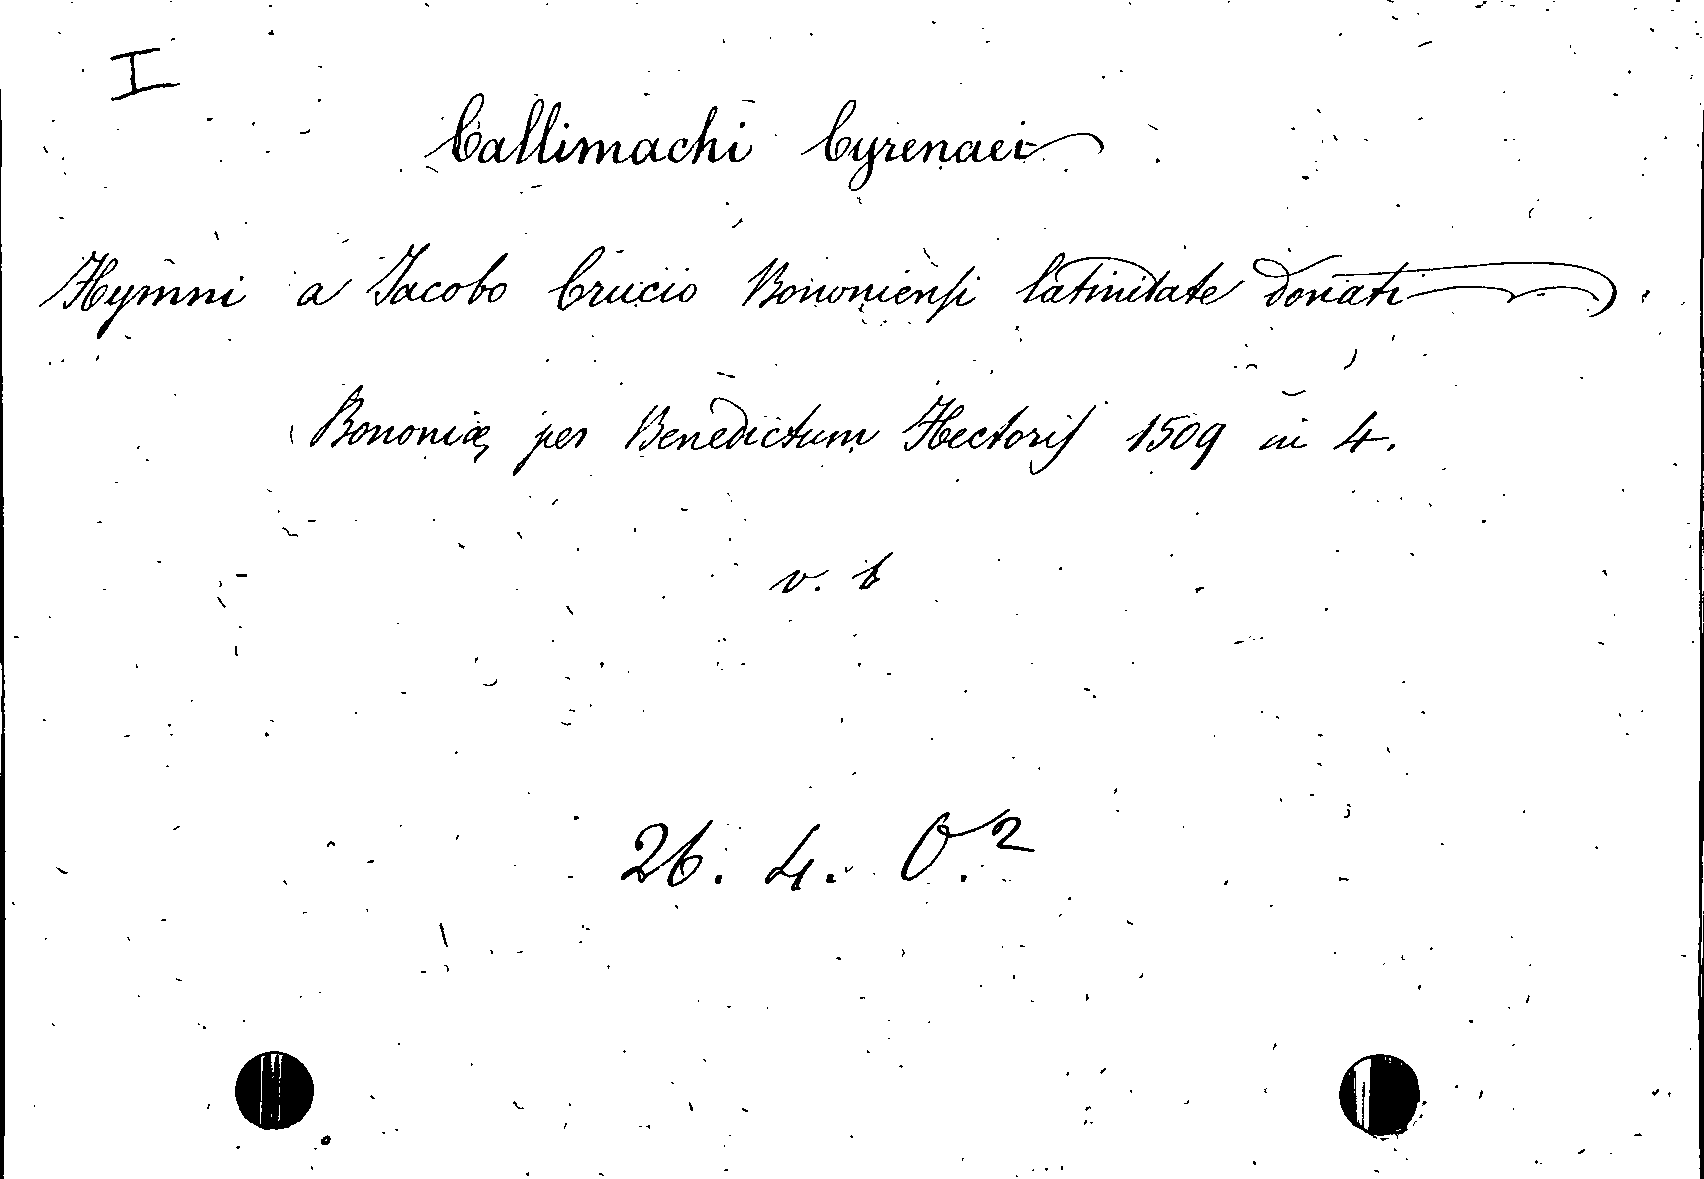 I
Callimachi Cyrenaei
Hymni a Jacobo Crucio Bononiensi latinitate donati
Bononiæ, per Benedictum Hectoris 1509 in 4.
v. b
26. 4. O.²